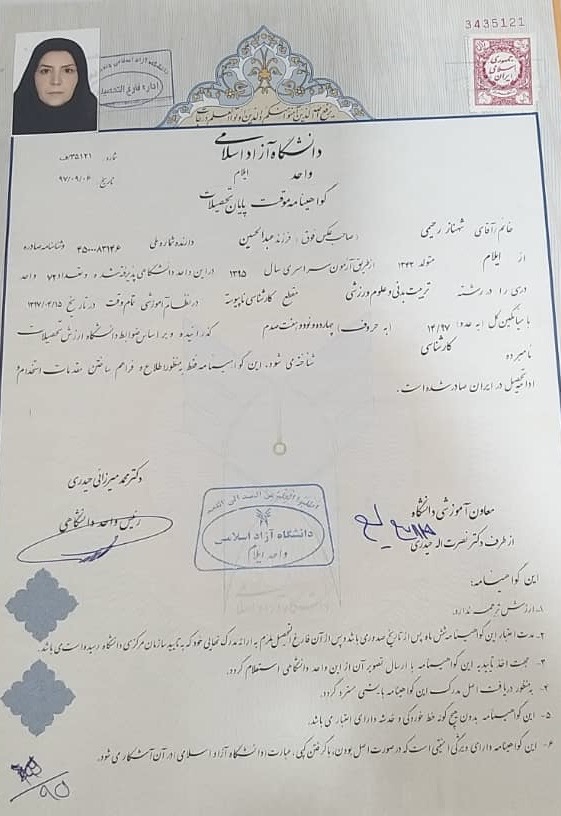 3435121
جمهوری اسلامی ایران
دانشگاه آزاد اسلامی
اداره فارغ التحصیلان
دانشگاه آزاد اسلامی
واحد ایلام
شماره: ۳۵۱۲۱/هـ
تاریخ ۹۷/۰۹/۰۶
گواهینامه موقت پایان تحصیلات
خانم/آقای شهناز رحیمی (صاحب عکس فوق) فرزند عبدالحسین دارنده شماره ملی وشناسنامه صادره
از ایلام متولد ۱۳۴۳ ازطریق آزمون سراسری سال ۱۳۹۵ دراین واحد دانشگاهی پذیرفته شده و تعداد ۷۲ واحد
درسی را در رشته تربیت بدنی و علوم ورزشی مقطع کارشناسی ناپیوسته درنظام آموزشی تمام وقت در تاریخ ۱۳۹۷/۰۴/۱۵
با میانگین کل (به عدد) ۱۴/۹۷ (به حروف) چهارده و نود و هفت صدم گذرانیده و بر اساس ضوابط دانشگاه ارزش تحصیلات
نامبرده کارشناسی شناخته می شود. این گواهینامه فقط بمنظور اطلاع و فراهم ساختن مقدمات استخدام/
ادامه تحصیل در ایران صادر شده است.
دکتر محمد میرزائی حیدری
رئیس واحد دانشگاهی
دانشگاه آزاد اسلامی
واحد ایلام
معاون آموزشی دانشگاه
از طرف دکتر نصرت اله حیدری
این گواهینامه:
۱- ارزش ترجمه ندارد.
۲- مدت اعتبار این گواهینامه شش ماه پس از تاریخ صدور می باشد و پس از آن فارغ التحصیل ملزم به ارائه مدرک نهایی خود که به تایید سازمان مرکزی دانشگاه رسیده است می باشد.
۳- جهت اخذ تاییدیه این گواهینامه با ارسال تصویر آن از این واحد دانشگاهی استعلام گردد.
۴- بمنظور دریافت اصل مدرک این گواهینامه بایستی مسترد گردد.
۵- این گواهینامه بدون هیچ گونه خط خوردگی و خدشه دارای اعتبار می باشد.
۶- این گواهینامه دارای ویژگی امنیتی است که در صورت اصل بودن، با گرفتن کپی، عبارت (دانشگاه آزاد اسلامی) در آن آشکار می شود.